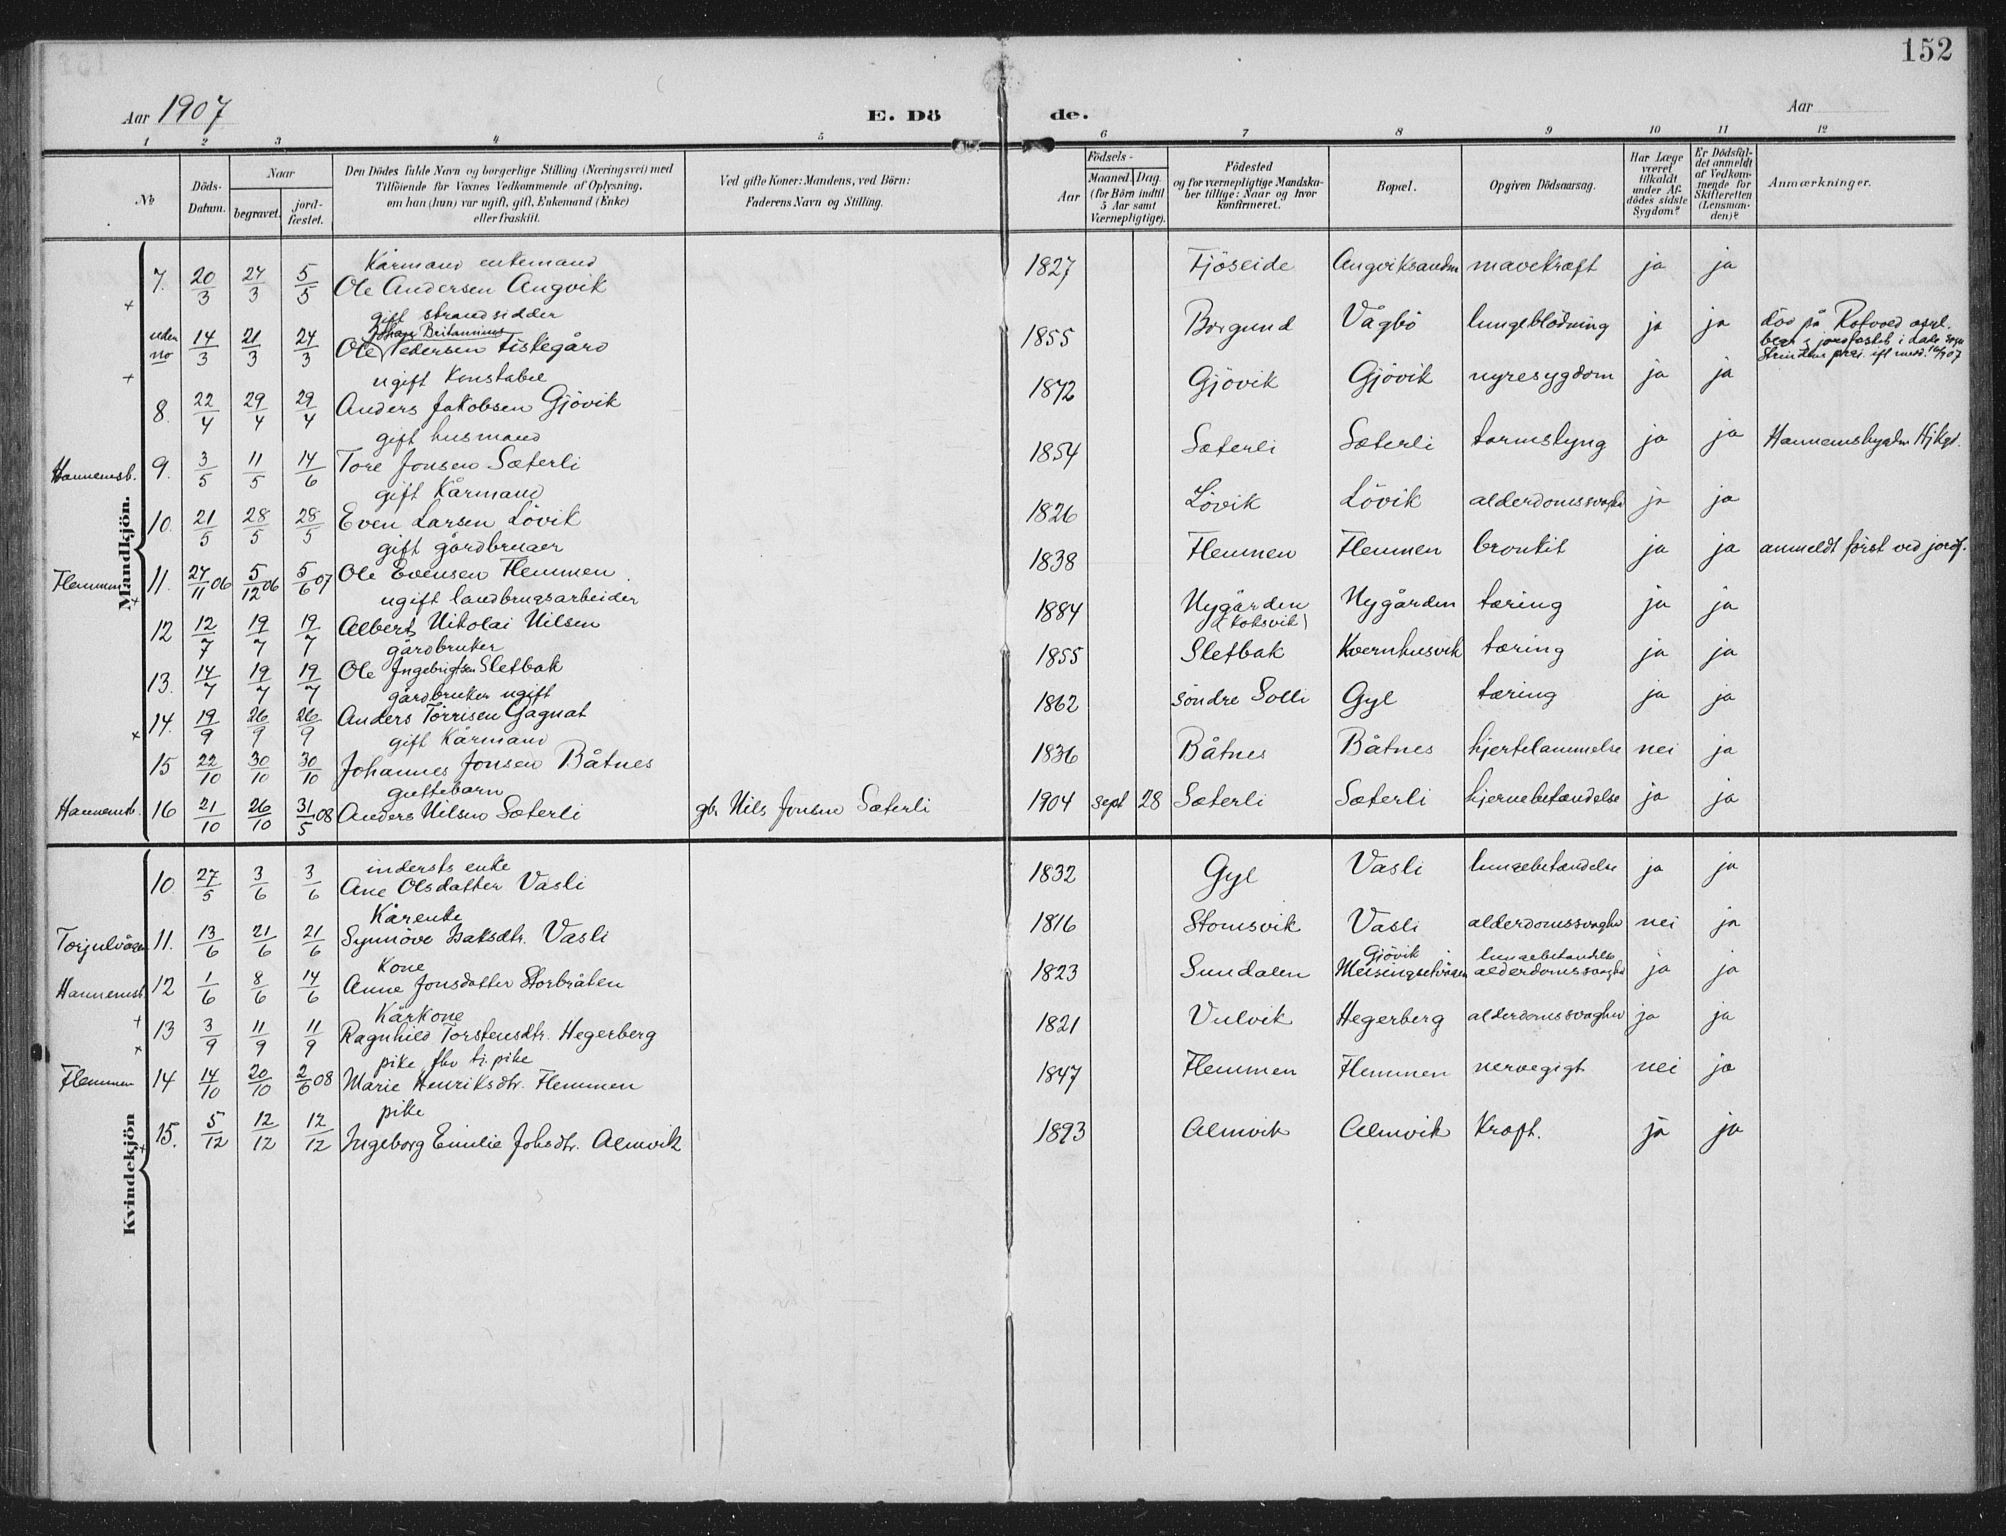 152
Aar 1907 E. Dö de. Aar
1 2 3 4 5 6 7 8 9 10 11 12
No
Döds-Datum.
Naar
begravet.
jord-fæstet.
Den Dödes fulde Navn og borgerlige Stilling (Næringsvei) med
Tilföiende for Voxnes Vedkommende af Oplysning,
om han (hun) var ugift, gift, Enkemand (Enke)
eller fraskilt.
Ved gifte Koner: Mandens, ved Börn:
Faderens Navn og Stilling.
Födsels-
Aar
Maaned. Dag.
(for Börn indtil
5 Aar samt
Værnepligtige).
Födested
og for værnepligtige Mandska-
ber tillige: Naar og hvor
konfirmeret.
Bopæl.
Opgiven Dödsaarsag.
Har Læge
været
tilkaldt
under Af-
dödes sidste
Sygdom?
Er Dödsfal-
det anmeldt
af Vedkom-
mende for
Skifteretten
(Lensman-
den)?
Anmærkninger.
Mandkjön.
Kårmand enkemand
7. 20/3 24/3 5/5 Ole Andersen Angvik 1827 Fjöseide mavekræft ja ja
gift strandsidder
Johan Britannius
uden no 14/3 21/3 24/3 Ole Pedersen Fiskegård 1855 Borgund Vågbö lungeblödning ja ja död på Rotvold asyl.
begr. & jordfæstet i Lade sogn
ugift Konstabel
8. 22/4 29/4 29/4 Anders Jakobsen Gjövik 1872 Gjövik Gjövik nyresygdom ja ja
gift husmand
Hannemsb. 9. 3/5 11/5 14/6 Tore Jonsen Sæterli 1854 Sæterli Sæterli tarmslyng ja ja
gift Kårmand
10. 21/5 28/5 28/5 Even Larsen Lövik 1826 Lövik Lövik ja ja
gift gårdbruger
Flemmen 11. 27/11 06 5/12 06 5/6 07 Ole Evensen Flemmen 1838 Flemmen Flemmen bronkit ja ja anmeldt först ved jordf.
ugift landbrugsarbeider
12 12/7 19/7 19/7 Albert Nikolai Nilsen 1884 Nygården (Koksvik) Nygården tæring ja ja
gårdbruker
13. 14/7 19/7 19/7 Ole Ingebrigtsen Sletbak 1855 Sletbak Kvernhusvik tæring ja ja
gårdbruker ugift
14. 19/9 26/9 26/9 Anders Törrisen Gagnat 1862 söndre Solli Gyl tæring ja ja
gift Kårmand
15 22/10 30/10 30/10 Johannes Jonsen Båtnes 1836 Båtnes Båtnes hjertelammelse nei ja
guttebarn
Hannemsb. 16 21/10 26/10 31/5 08 Anders Nilsen Sæterli gb. Nils Jonsen Sæterli 1904 sept 28 Sæterli Sæterli hjernebetændelse ja ja
Kvindekjön
indersts enke
10. 27/5 3/6 3/6 Ane Olsdatter Vasli 1832 Gyl Vasli lungebetændelse ja ja
Kårenke
Torjulvågen 11. 13/6 21/6 21/6 Synnöve Isaksdtr. Vasli 1816 Stomsvik Vasli alderdomssvaghed nei ja
Kone
Hannemsb. 12 1/6 8/6 14/6 Anne Jonsdatter Storbråten 1823 Sundalen Gjövik Meisingsetvågen lungebetændelse alderdomssvaghed ja ja
Kårkone
13 3/9 11/9 11/9 Ragnhild Torstensdtr. Hegerberg 1821 Vulvik Hegerberg alderdomssvaghed ja ja
pike fhv tj. pike
Flemmen 14 14/10 20/10 2/6 08 Marie Henriksdtr. Flemmen 1847 Flemmen Flemmen nervegigt nei ja
pike
15. 5/12 12/12 12/12 Ingeborg Emilie Johsdtr. Almvik 1893 Almvik Almvik Kræft. ja ja